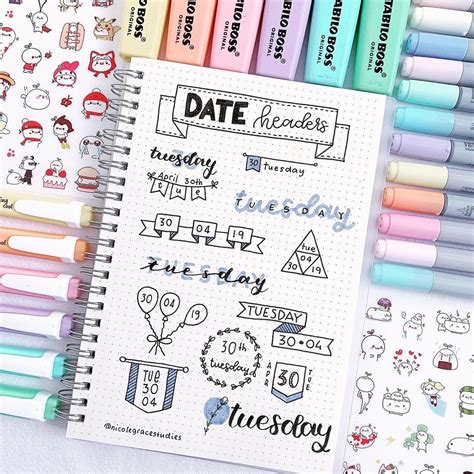 STABILO BOSS ORIGINAL
STABILO BOSS ORIGINAL
STABILO BOSS ORIGINAL
STABILO BOSS ORIGINAL
STABILO BOSS ORIGINAL
DATE headers
tuesday
April 30th
tue
tuesday
tuesday
TUESDAY
30 04 19
30
04 19
tuesday
TUESDAY
30 04 19
TUESDAY
30•04
30th
tuesday
TUE
30
04
APR
30
tuesday
@nicolegracestudies
cool